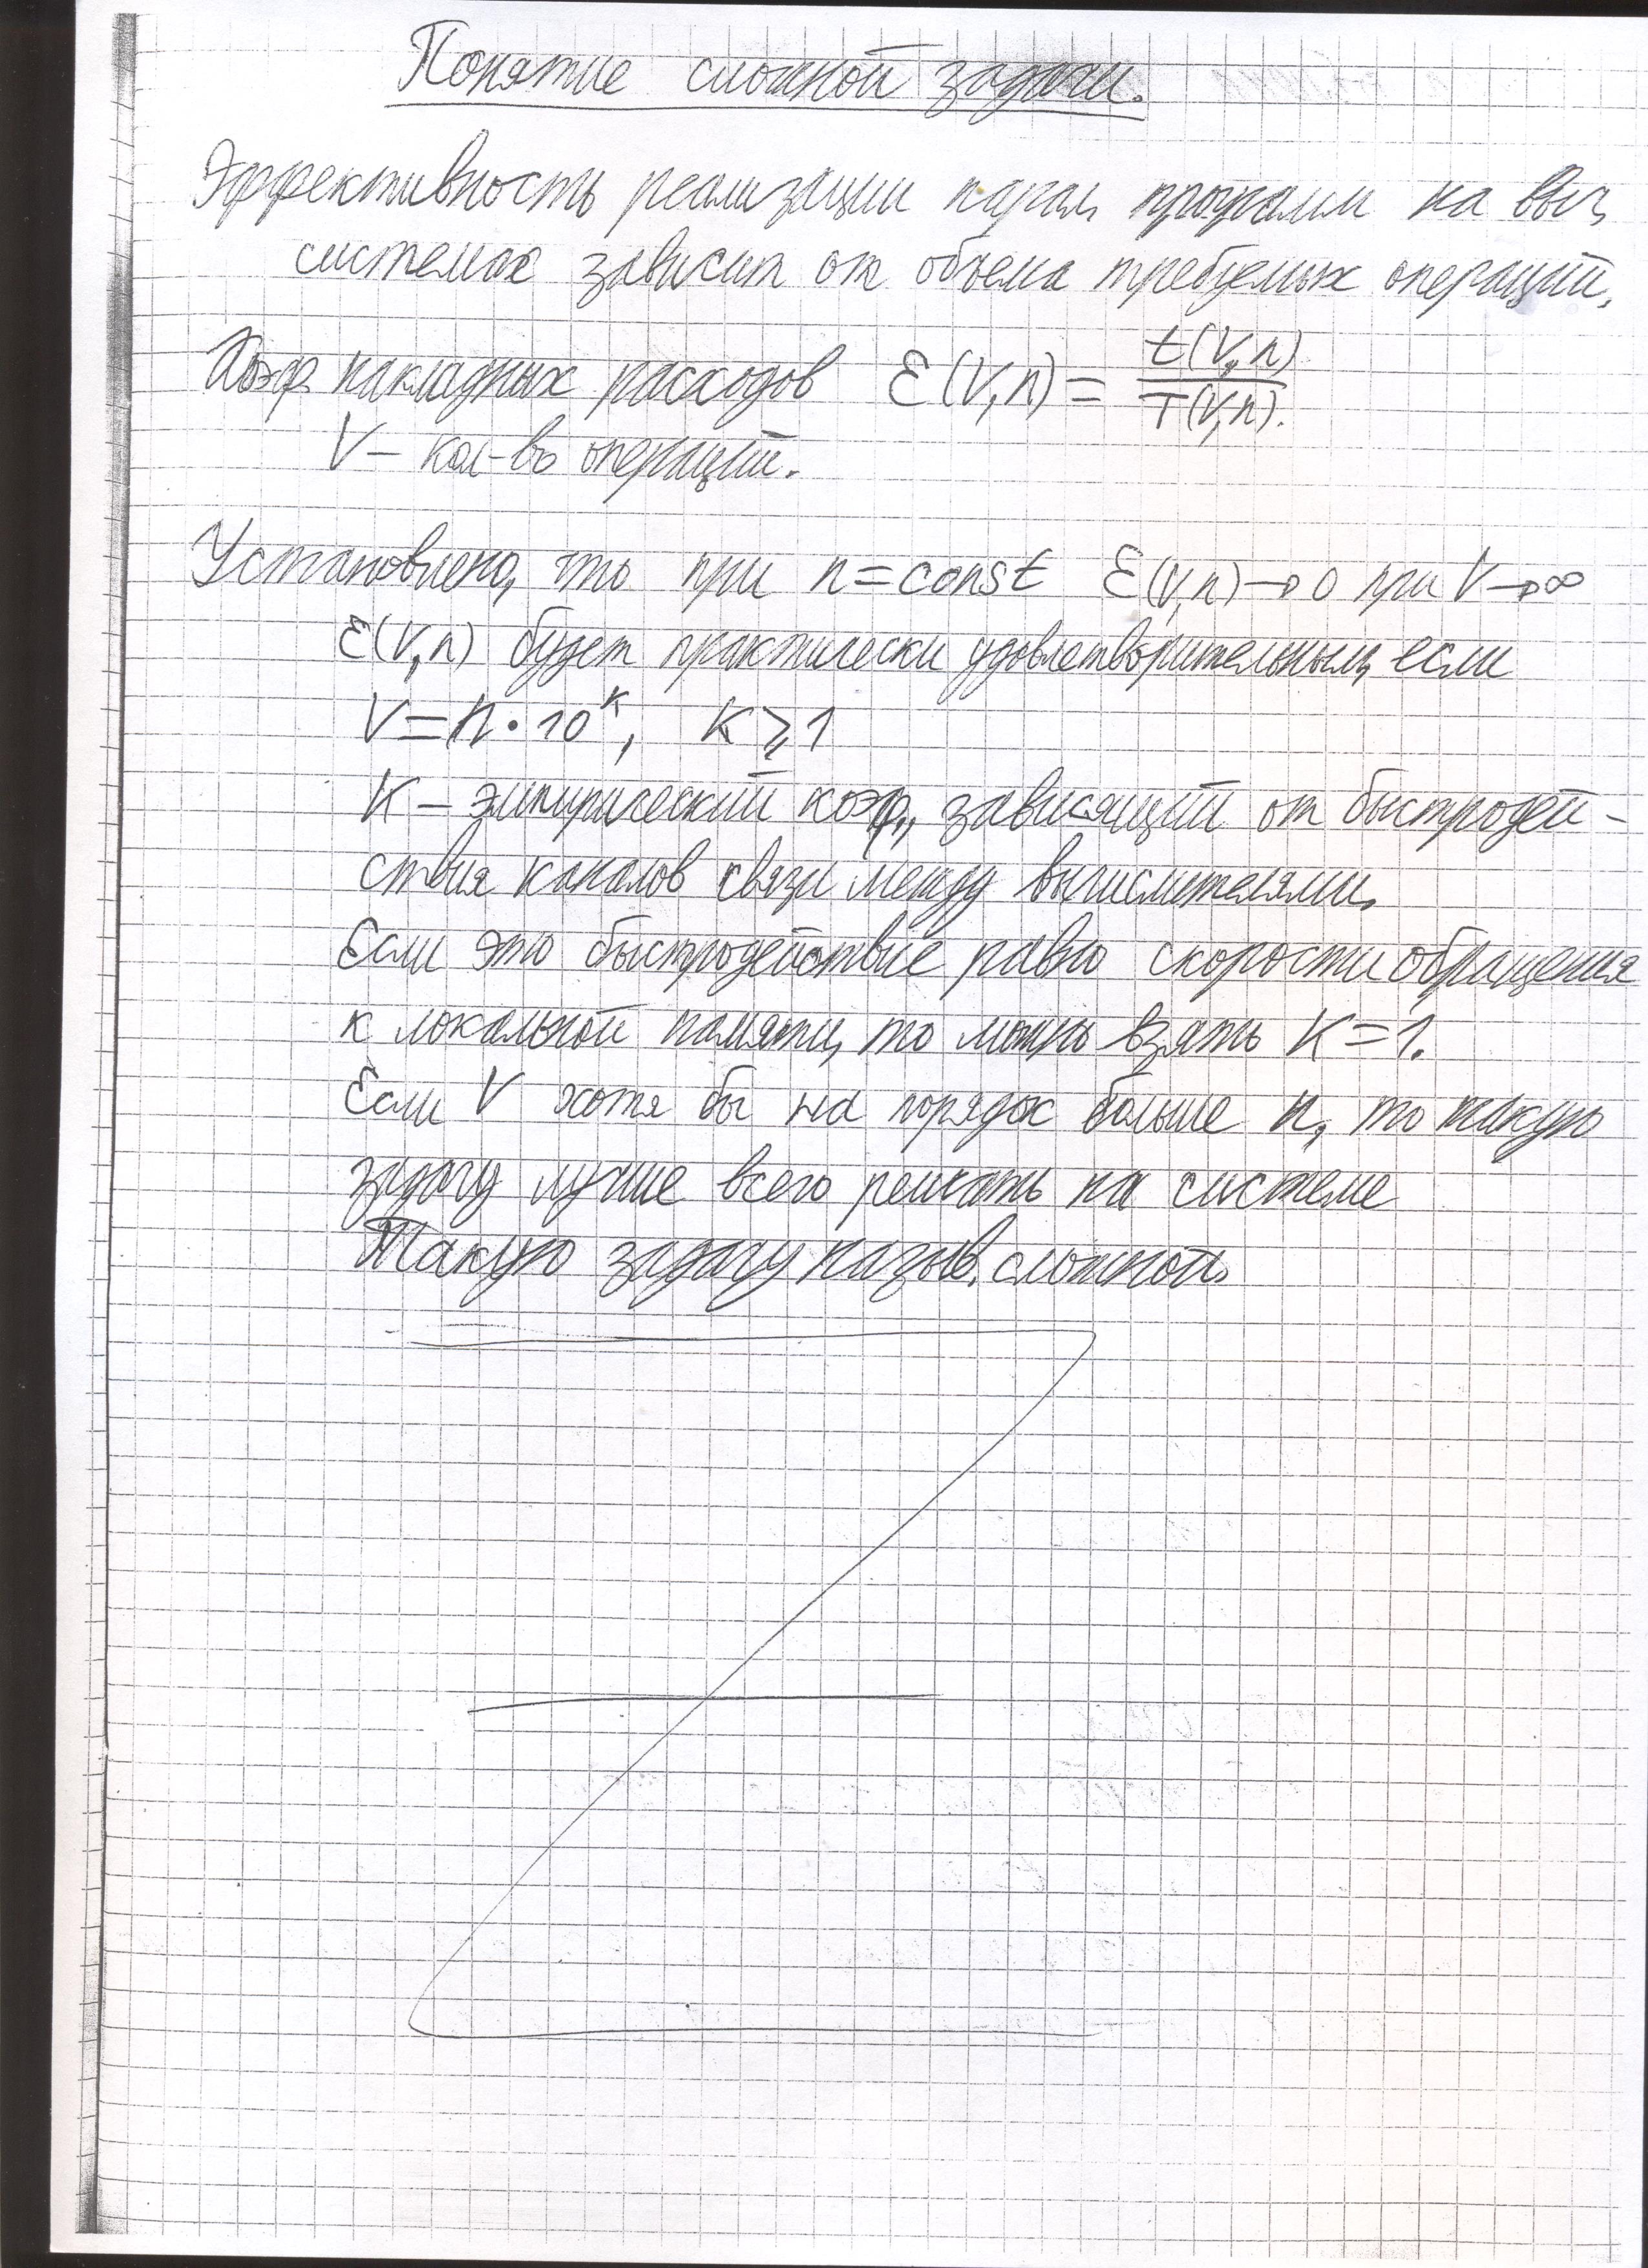 Понятие сложной задачи.
Эффективность реализации парал. программ на выч.
системах зависит от объема требуемых операций.
Коэф накладных расходов ε(V,n) = t(V,n) / T(V,n).
V – кол-во операций.
Установлено, что при n=const ε(V,n)→0 при V→∞
ε(V,n) будет практически удовлетворительным, если
V=n·10^k, K⩾1
K – эмпирический коэф., зависящий от быстродей-
ствия каналов связи между вычислителями.
Если это быстродействие равно скорости обращения
к локальной памяти, то можно взять K=1.
Если V хотя бы на порядок больше n, то такую
задачу лучше всего решать на системе
Такую задачу назыв. сложной.